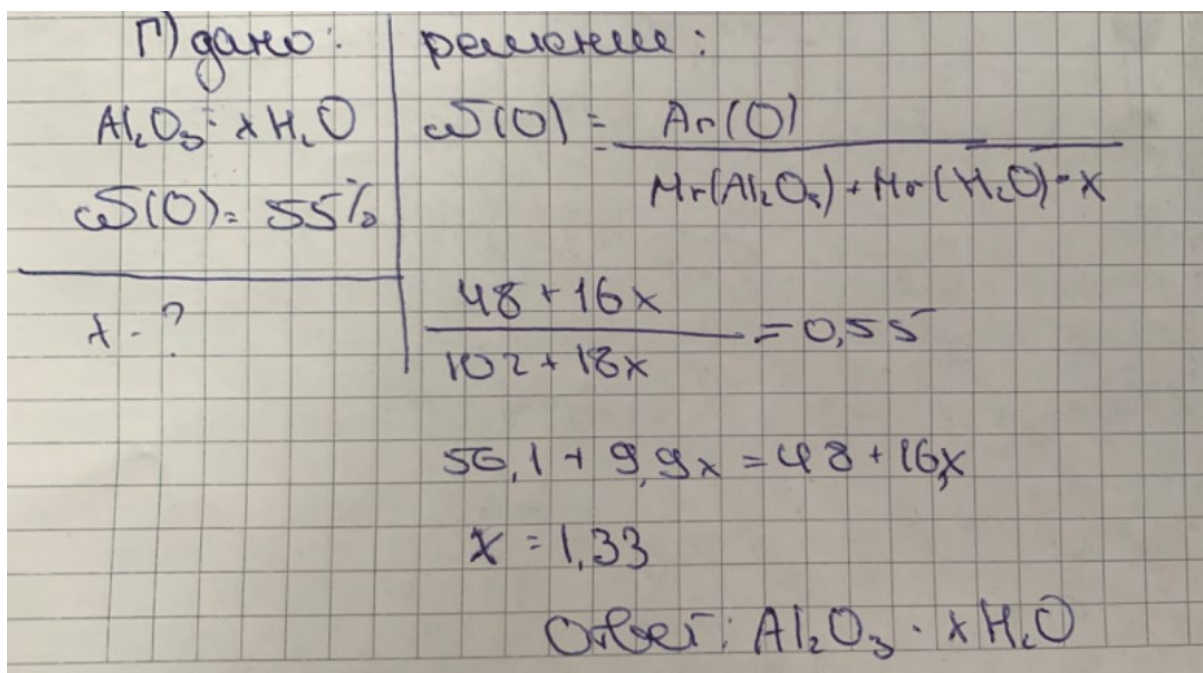 Г) дано:
Al₂O₃ · xH₂O
ω(O) = 55%
x - ?
решение:
ω(O) = Ar(O)
Mr(Al₂O₃) + Mr(H₂O) · x
48 + 16x
102 + 18x
= 0,55
56,1 + 9,9x = 48 + 16x
x = 1,33
Ответ: Al₂O₃ · xH₂O